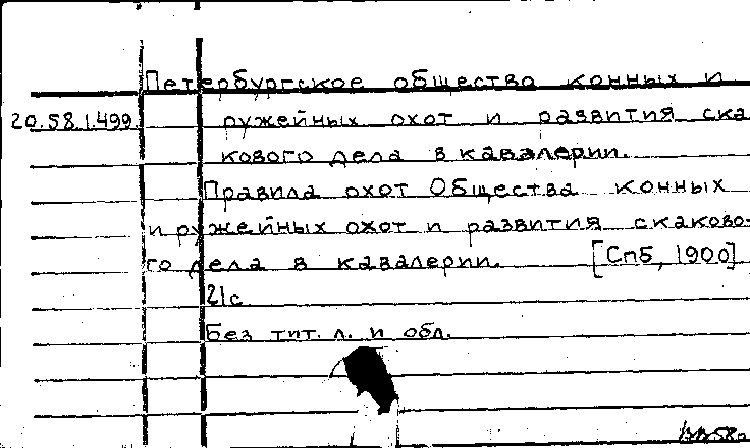 Петербургское общество конных и
20.58.1.499. ружейных охот и развития ска
кового дела в кавалерии.
Правила охот Общества конных
и ружейных охот и развития скаково-
го дела в кавалерии. [Спб, 1900]
21с
Без тит. л. и обл.